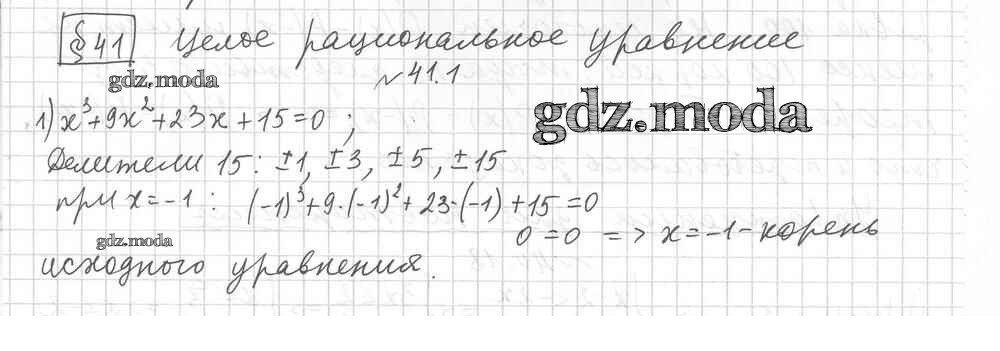 § 41 Целое рациональное уравнение
gdz.moda
№ 41.1
gdz.moda
1) x³+9x²+23x+15=0 ;
Делители 15: ±1, ±3, ±5, ±15
при x=-1 : (-1)³+9·(-1)²+23·(-1)+15=0
0=0 => x=-1-корень
gdz.moda
исходного уравнения.